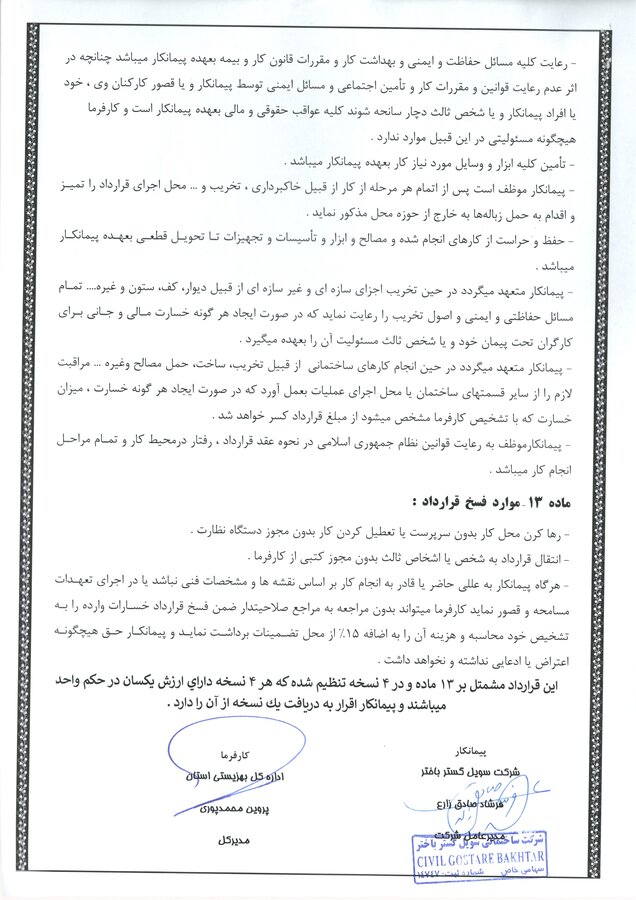 - رعایت کلیه مسائل حفاظت و ایمنی و بهداشت کار و مقررات قانون کار و بیمه بعهده پیمانکار میباشد چنانچه در
اثر عدم رعایت قوانین و مقررات کار و تأمین اجتماعی و مسائل ایمنی توسط پیمانکار و یا قصور کارکنان وی ، خود
یا افراد پیمانکار و یا شخص ثالث دچار سانحه شوند کلیه عواقب حقوقی و مالی بعهده پیمانکار است و کارفرما
هیچگونه مسئولیتی در این قبیل موارد ندارد .
- تأمین کلیه ابزار و وسایل مورد نیاز کار بعهده پیمانکار میباشد .
- پیمانکار موظف است پس از اتمام هر مرحله از کار از قبیل خاکبرداری ، تخریب و ... محل اجرای قرارداد را تمیـز
و اقدام به حمل زباله‌ها به خارج از حوزه محل مذکور نماید .
- حفظ و حراست از کارهای انجام شده و مصالح و ابزار و تأسیسات و تجهیزات تـا تحویـل قطعـی بعهـده پیمانکـار
میباشد .
- پیمانکار متعهد میگردد در حین تخریب اجزای سازه ای و غیر سازه ای از قبیل دیوار، کف، ستون و غیره.... تمـام
مسائل حفاظتی و ایمنی و اصول تخریب را رعایت نماید که در صورت ایجاد هر گونه خسارت مـالی و جـانی بـرای
کارگران تحت پیمان خود و یا شخص ثالث مسئولیت آن را بعهده میگیرد .
- پیمانکار متعهد میگردد در حین انجام کارهای ساختمانی از قبیل تخریب، ساخت، حمل مصالح وغیره ... مراقبت
لازم را از سایر قسمتهای ساختمان یا محل اجرای عملیات بعمل آورد که در صورت ایجاد هر گونه خسارت ، میزان
خسارت که با تشخیص کارفرما مشخص میشود از مبلغ قرارداد کسر خواهد شد .
- پیمانکارموظف به رعایت قوانین نظام جمهوری اسلامی در نحوه عقد قرارداد ، رفتار درمحیط کار و تمـام مراحـل
انجام کار میباشد .
ماده ۱۳ـ موارد فسخ قرارداد :
- رها کرن محل کار بدون سرپرست یا تعطیل کردن کار بدون مجوز دستگاه نظارت .
- انتقال قرارداد به شخص یا اشخاص ثالث بدون مجوز کتبی از کارفرما .
- هرگاه پیمانکار به عللی حاضر یا قادر به انجام کار بر اساس نقشه ها و مشخصات فنی نباشد یا در اجرای تعهـدات
مسامحه و قصور نماید کارفرما میتواند بدون مراجعه به مراجع صلاحیتدار ضمن فسخ قرارداد خسارات وارده را بـه
تشخیص خود محاسبه و هزینه آن را به اضافه ۱۵٪ از محل تضـمینات برداشـت نمایـد و پیمانکـار حـق هیچگونـه
اعتراض یا ادعایی نداشته و نخواهد داشت .
این قرارداد مشتمل بر ۱۳ ماده و در ۴ نسخه تنظیم شده که هر ۴ نسخه دارای ارزش یکسان در حکم واحد
میباشند و پیمانکار اقرار به دریافت یك نسخه از آن را دارد .
پیمانکار
شرکت سویل گستر باختر
فرشاد صادق زارع
مدیرعامل شرکت
کارفرما
اداره کل بهزیستی استان
پروین محمدپوری
مدیرکل
شرکت ساختمانی سویل گستر باختر
CIVIL GOSTARE BAKHTAR
سهامی خاص شماره ثبت: ۱۴۷۴۷